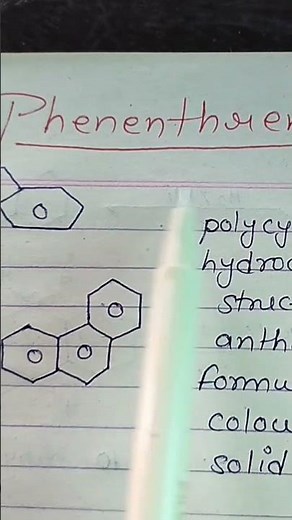 Phenenthren
polycy
hydroc
struc
anth
formu
colou
solid